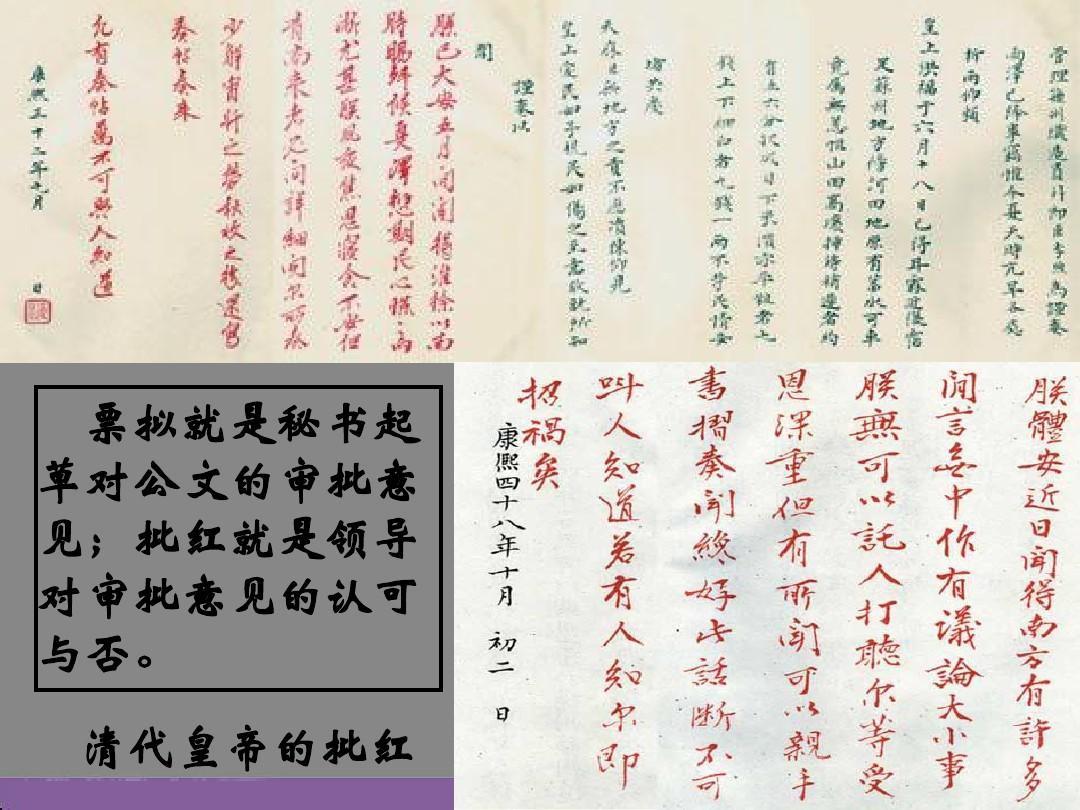 管理蘇州織造員外郎臣李煦爲謹奏
雨澤已降事竊惟今夏天時亢旱各處
祈雨仰賴
皇上洪福于六月十八日已得甘霖
蘇州地方濱河田地原有蓄水可車
竟屬無恙惟山田高壤插蒔稍遲者約
有五六分收成目下米價
錢上下細白者九錢一兩不等民情安
堵共慶
天庥 無地方之責不應瀆陳仰見
皇上愛民如子視民如傷之至意敬就所知
謹奏以
聞
朕已大安五月間聞得淮徐以南
時暘舛候夏澤愆期民心慌慌兩
浙尤甚朕夙夜焦思寢食不安但
有南來者必問詳細聞爾所奏
少解宵旰之勞秋收之後還寫
奏帖奏來
凡有奏帖萬不可與人知道
康熙三十二年七月 日
票拟就是秘书起
草对公文的审批意
见；批红就是领导
对审批意见的认可
与否。
清代皇帝的批红
朕體安近日聞得南方有許多
閒言無中作有議論大小事
朕無可以託人打聽尔等受
恩深重但有所聞可以親手
書摺奏聞纔好此話斷不可
叫人知道若有人知尔即
招禍矣
康熙四十八年十月 初二 日